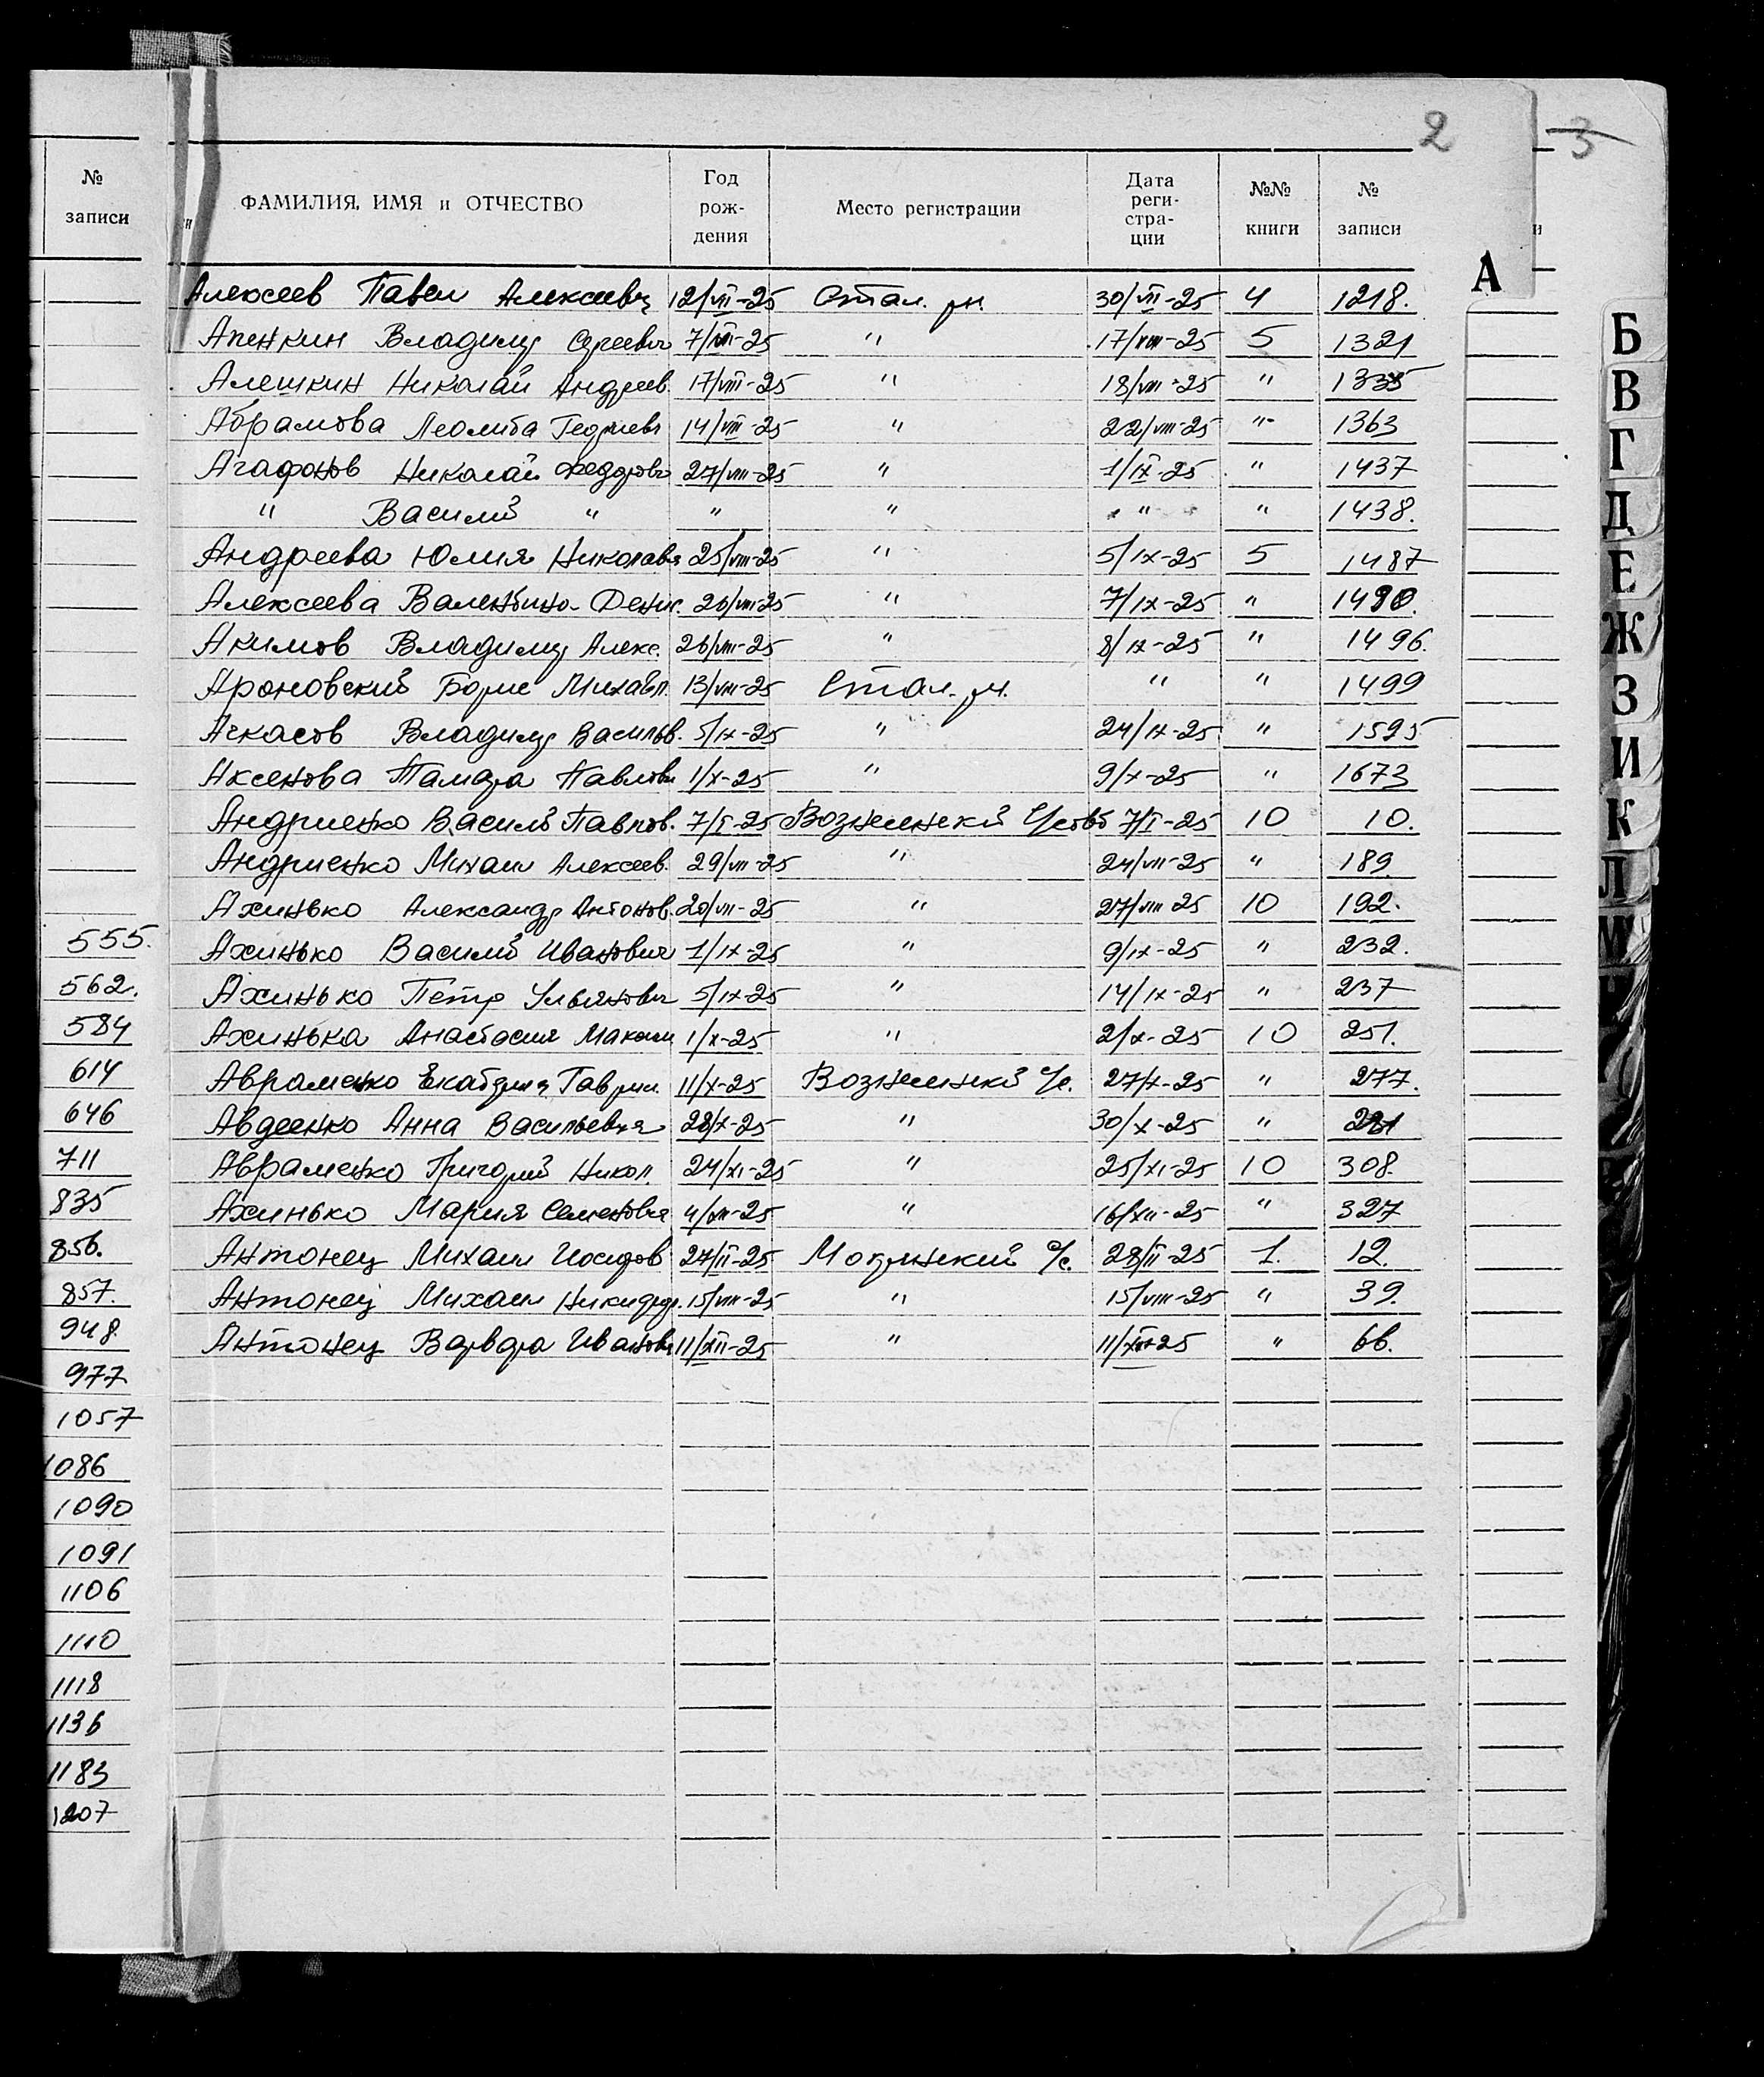 2 3
№ записи
ФАМИЛИЯ, ИМЯ и ОТЧЕСТВО Год рождения Место регистрации Дата регистрации №№ книги № записи
А
Алексеев Павел Алексеевч 12/VII-25 Стал. рн. 30/VII-25 4 1218.
Апенкин Владимир 7/VIII-25 " 17/VIII-25 5 1321
Алешкин Николай Андреев. 17/VIII-25 " 18/VIII-25 " 1335
Абрамова 14/VIII-25 " 22/VIII-25 " 1363
Агафонов Николай Федоровч 27/VIII-25 " 1/IX-25 " 1437
" Василий " " " " " 1438.
Андреева Юлия Николавна 25/VIII-25 " 5/IX-25 5 1487
Алексеева Валентина Денис. 26/VIII-25 " 7/IX-25 " 1490.
Акимов Владимир Алекс. 26/VIII-25 " 8/IX-25 " 1496.
Ароновский Борис Михайл. 13/VIII-25 Стал. рн. " " 1499
Ачкасов Владимир Васильв. 5/IX-25 " 24/IX-25 " 1595
Аксенова Тамара Павловн 1/X-25 " 9/X-25 " 1673
Андриенко Василй Павлов. 7/I-25 Вознесенский с/совт 7/I-25 10 10.
Андриенко Михаил Алексеев. 29/VII-25 " 24/VII-25 " 189.
Ахинько Александр Антонов. 20/VII-25 " 27/VIII 25 10 192.
Ахинько Василий Иванович 1/IX-25 " 9/IX-25 " 232.
Ахинько Петр Ульянович 5/IX-25 " 14/IX-25 " 237
Ахинька Анастасия 1/X-25 " 2/X-25 10 251.
Авраменко Екатерина Гаврил. 11/X-25 Вознесенский с/с. 27/X-25 " 277.
Авдеенко Анна Васильевна 28/X-25 " 30/X-25 "
Авраменко Григорий Никол. 24/XI-25 " 25/XI-25 10 308.
Ахинько Мария Семеновна 4/XII-25 " 16/XII-25 " 327
Антонец Михаил 27/II-25 Мокрянский с/с. 28/II-25 1. 12.
Антонец Михаил Никифор. 15/VIII-25 " 15/VIII-25 " 39.
Антонец Варвара Ивановн 11/XII-25 " 11/XII-25 " 66.
555.
562.
584
614
646
711
835
856.
857.
948.
977
1057
1086
1090
1091
1106
1110
1118
1136
1183
1207
Б
В
Г
Д
Е
Ж
З
И
К
Л
М